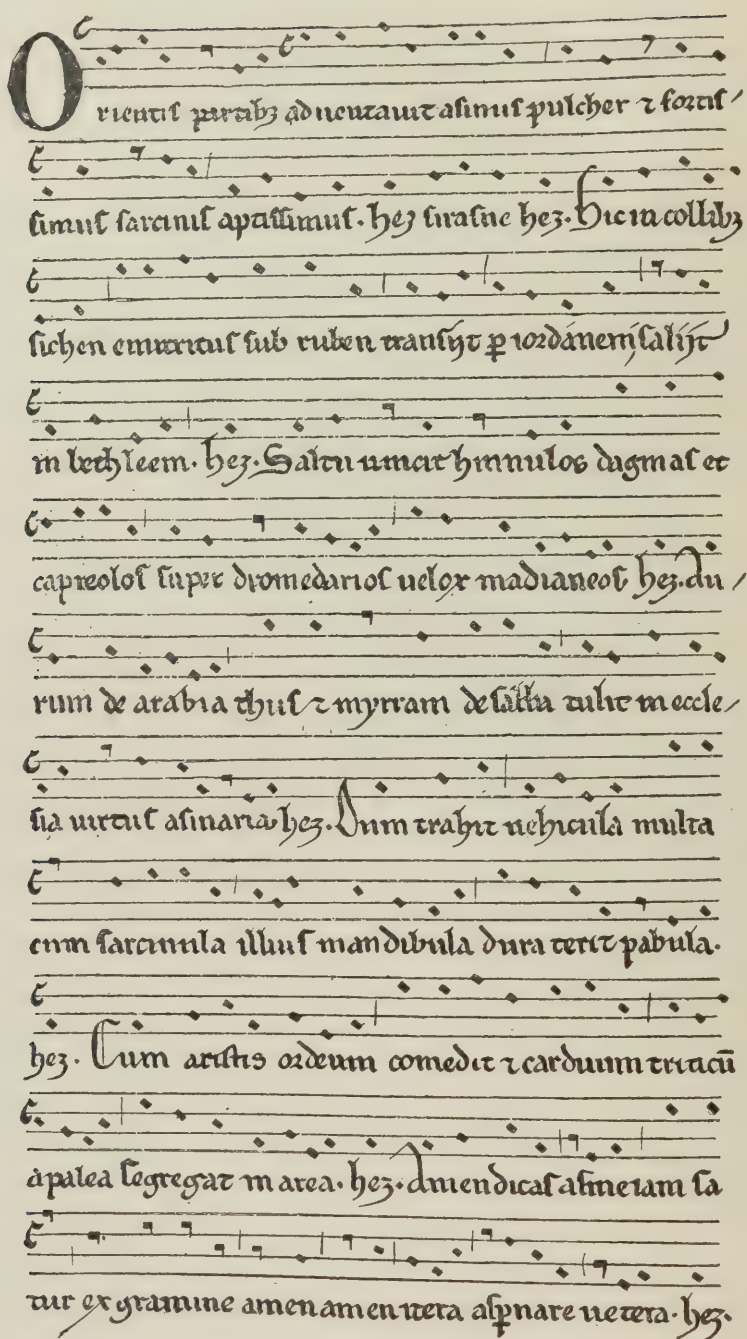 Orientis partibꝫ adventauit asinus pulcher ⁊ fortis
simus sarcinis aptissimus. heꝫ sirasne heꝫ. Hic in collibꝫ
sichen enutritus sub ruben transijt ꝑ iordanem salijt
in bethleem. heꝫ. Saltu uincit hinnulos dagmas et
capreolos super dromedarios uelox madianeos heꝫ. Au
rum de arabia thus ⁊ myrram de saba tulit in eccle
sia uirtus asinaria heꝫ. Dum trahit uehicula multa
cum sarcinula illius mandibula dura terit pabula.
heꝫ. Cum aristis ordeum comedit ⁊ carduum triticū
a palea segregat in area. heꝫ. Amen dicas asine iam sa
tur ex gramine amen amen itera aspnare uetera. heꝫ.